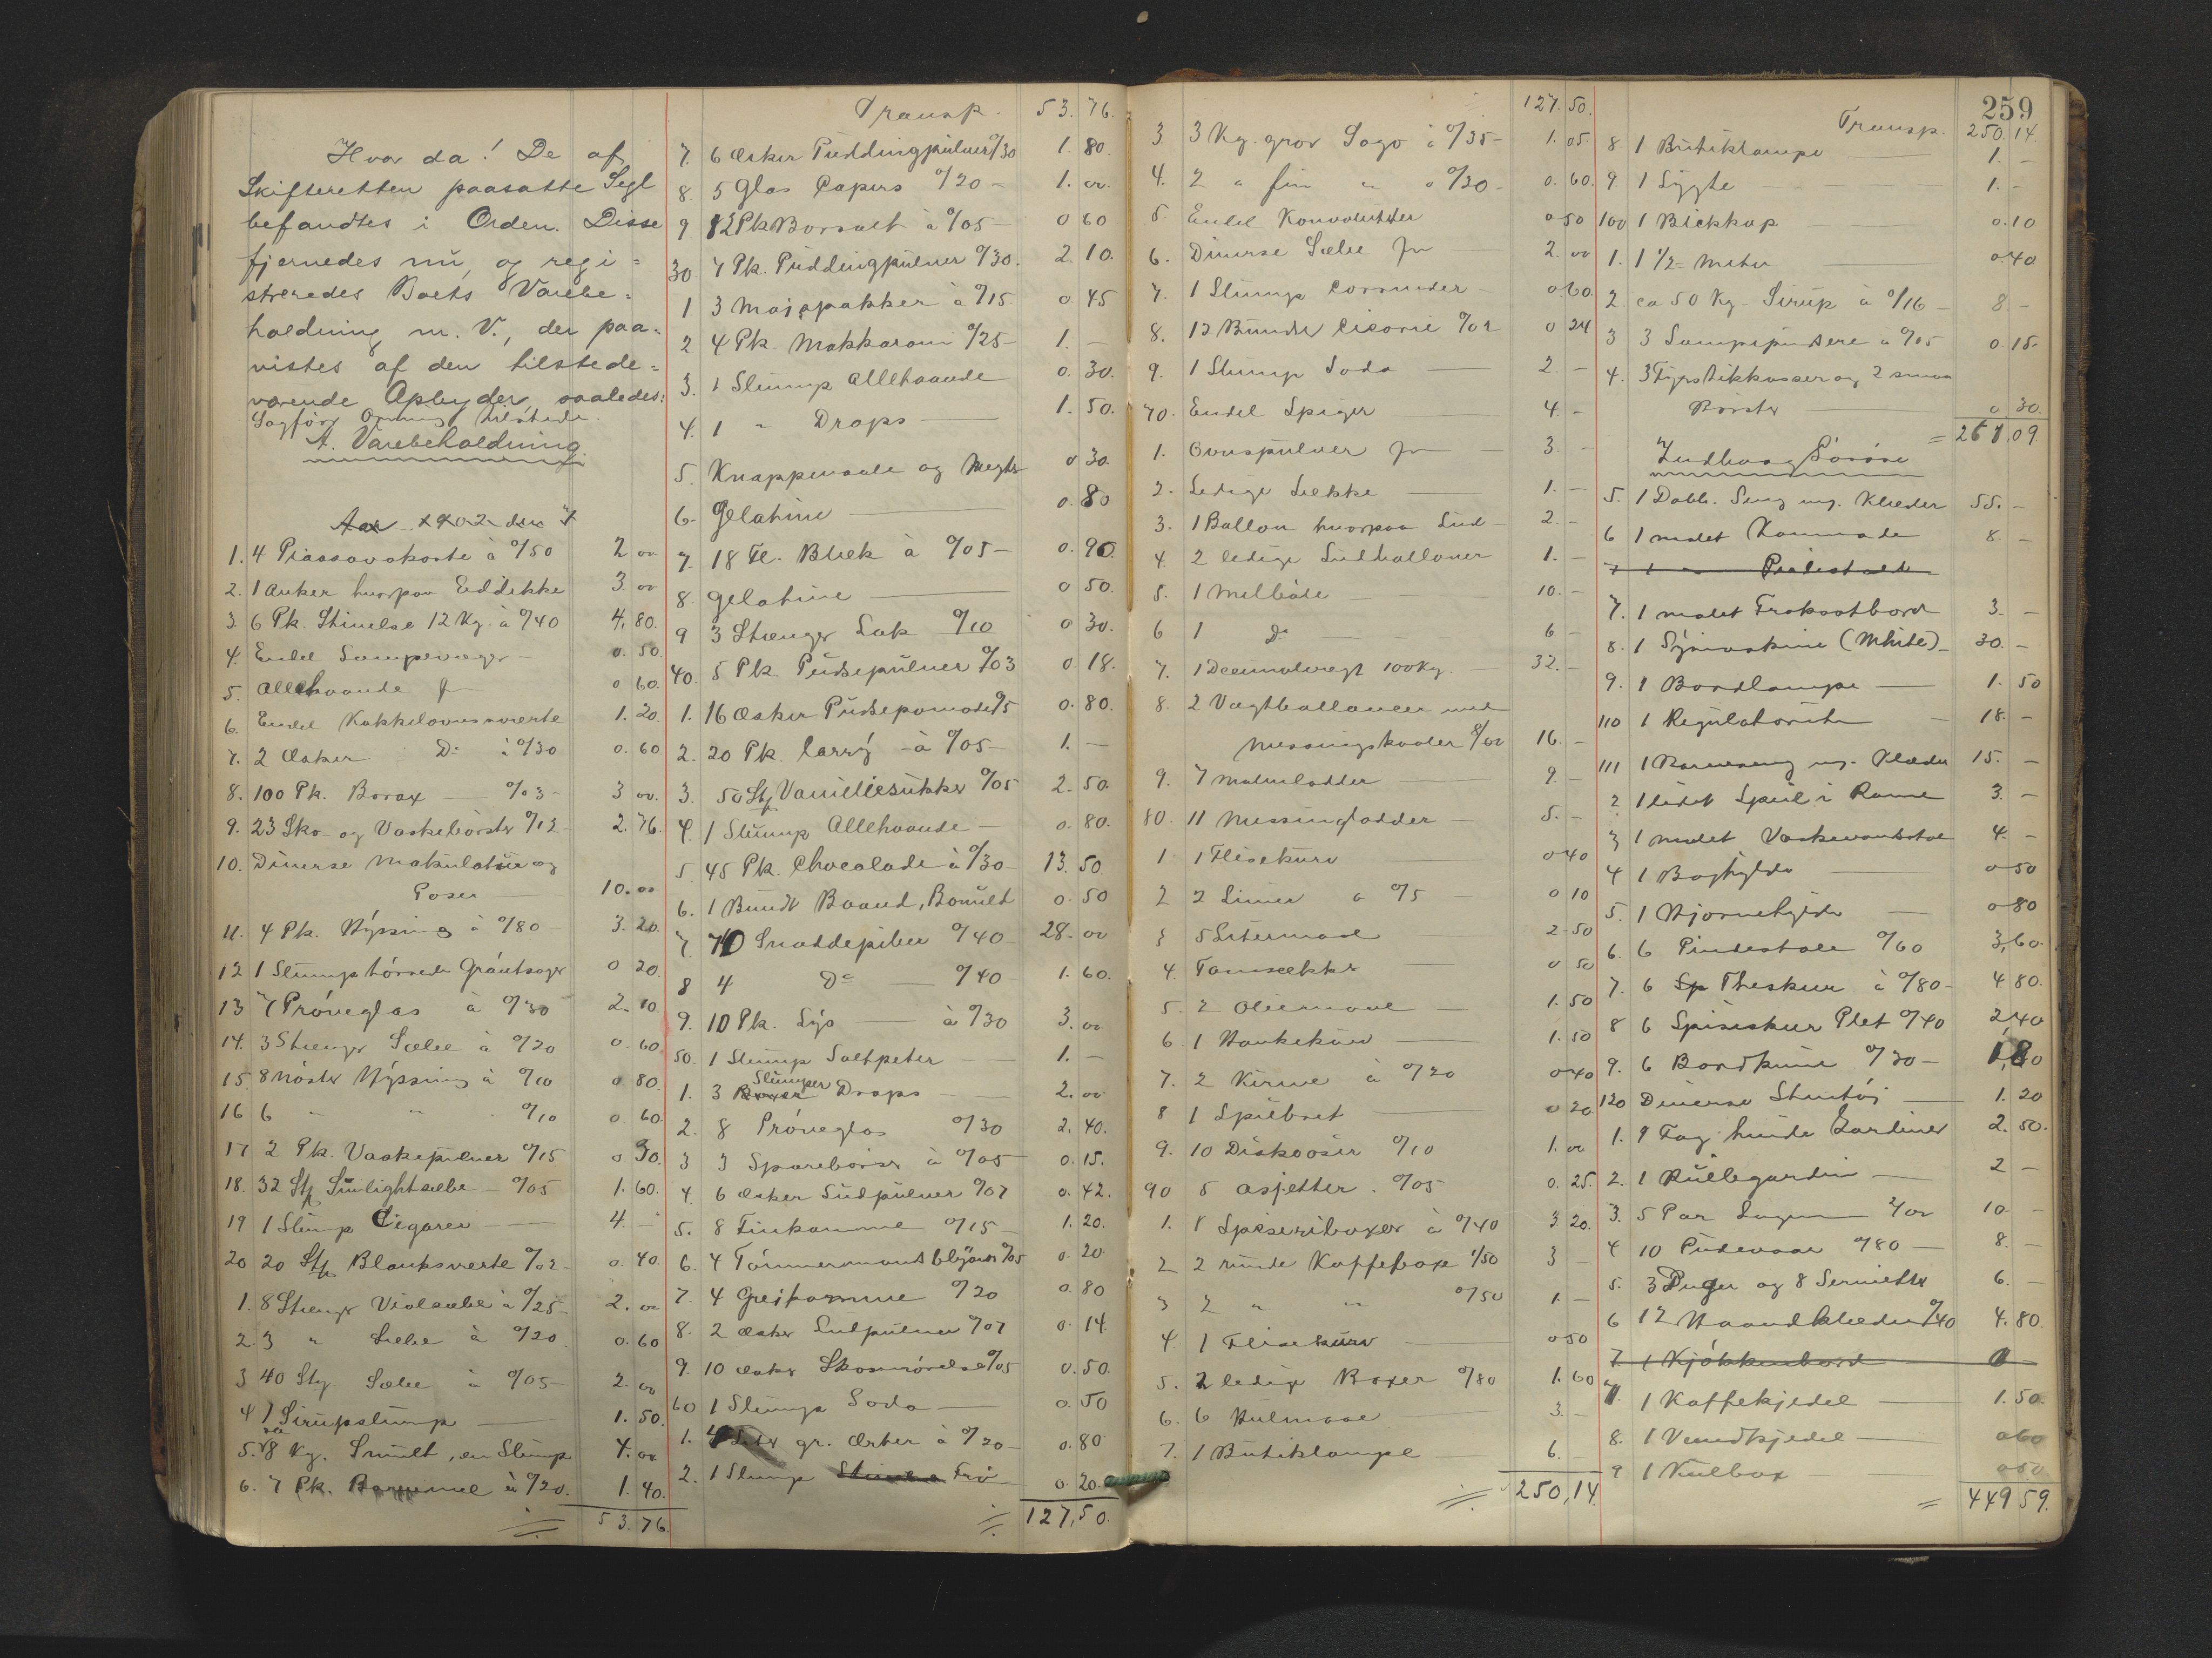 Hvor da! De af
Skifteretten paasatte Segl
befandtes i Orden. Disse
fjernedes nu, og regi=
streredes Boets Varebe=
holdning m. V., der paa=
vistes af den tilstede=
værende Opbyder saaledes:
Sagfører tilstede.
A. Varebeholdning.
Aar 1902 den 7
1. 4 Piassavakoste à 0/50 2 00
2. 1 Anker hvorpaa Eddikke 3 00
3. 6 Pk. Stivelse 12 Kg. à 0/40 4.80.
4. Endel Lampevæger 0.50.
5. Allehaande fr 0 60.
6. Endel Kakkelovnsværte 1.20.
7. 2 Æsker Do à 0/30 0.60
8. 100 Pk. Borax 0/03 3 00.
9. 23 Sko- og Vaskebørster 0/12 2.76.
10. Diverse Makulatur og
Poser 10.00
11. 4 Pk. Hyssing à 0/80 3.20
12 1 Slump tørrede Grøntsager 0 20.
13 7 Prøveglas à 0/30 2.10.
14. 3 Stænger Sæbe à 0/20 0.60
15. 8 Nøster Hyssing à 0/10 0.80.
16 6 " " 0/10 0.60.
17 2 Pk. Vaskepulver 0/15 0 30.
18. 32 St Sunlightsæbe 0/05 1.60.
19 1 Slump Cigarer 4.—
20 20 St Blanksværte 0/02 0.40.
1. 8 Stænger Violsæbe à 0/25 2.00
2. 3 " Sæbe à 0/20 0.60
3 40 St. Sæbe à 0/05 2.00
4 1 Sirupslump 1.50.
5. ca 8 Kg. Smult, en Slump 4.00
6. 7 Pk. à 0/20. 1.40.
53.76.
Transp. 53.76.
7. 6 Æsker Puddingpulver 0/30 1.80.
8. 5 Glas Capers 0/20 1.00.
9 12 Pk Borsalt à 0/05 0 60
30. 7 Pk. Puddingpulver 0/30. 2.10.
1 3 Maispakker à 0/15 0.45
2 4 Pk. Makkaroni 0/25 1.—
3. 1 Slump Allehaande 0.30.
4. 1 " Drops 1.50.
5. Knappenaale og 0 30.
6. Gelatine 0.80
7. 18 Fl. Blæk à 0/05 0.90.
8. Gelatine 0 50.
9 3 Stænger Lak 0/10 0 30.
40. 5 Pk. Pudsepulver 0/03 0.18.
1. 16 Æsker Pudsepomade 0/5 0.80.
2. 20 Pk. Carry à 0/05 1.—
3. 50 St Vanillesukker 0/05 2.50.
4. 1 Slump Allehaande 0.80.
5 45 Pk. Chocolade à 0/30 13.50.
6. 1 Bundt Baand, Bomuld 0.50
7. 70 Snaddepiber 0/40 28.00
8 4 Do 0/40 1.60.
9. 10 Pk. Lys à 0/30 3.00
50. 1 Slump Saltpeter 1.—
1. 3 Slumper Drops 2.00
2. 8 Prøveglas 0/30 2.40.
3 3 Sparebøsser à 0/05 0.15.
4. 6 Æsker Ludpulver 0/07 0.42.
5. 8 Finkamme 0/15 1.20.
6. 4 Tømmermandsblyanter 0/05 0.20
7. 4 Greiskamme 0/20 0.80
8. 2 Æsker Ludpulver 0/07 0.14.
9. 10 Æsker Skosmørelse 0/05 0.50.
60 1 Slump Soda 0.50
1. 4 Liter gr. Ærter à 0/20 0.80
2. 1 Slump Frø 0.20
127,50.
127.50.
3. 3 Kg. grov Sago à 0/35 1.05.
4. 2 " fin " " 0/30 0.60.
5. Endel Konvolutter 0 50
6. Diverse Sæbe fr 2.00
7. 1 Slump Corender 0.60.
8. 12 Bundter Cicorie 0/02 0 24
9. 1 Slump Soda 2 —
70. Endel Spiger 4.—
1. Ovnspulver fr 3.—
2. Ledige Sække 1.—
3. 1 Ballon hvorpaa Lud 2.—
4. 2 ledige Ludballoner 1.—
5. 1 Melbøle 10.—
6 1 Do 6.—
7. 1 Decimalvægt 100 Kg. 32.—
8. 2 Vægtballancer med
Messingskaaler 8/00 16.—
9. 7 Malmlodder 9.—
80. 11 Messinglodder 5.—
1 1 Flisekurv 0 40
2 2 Limer à 0/5 0 10
3 5 Litermaal 2.50
4. Tomsække 0 50
5. 2 Oliemaal 1.50
6 1 Hankekurv 1.50
7. 2 Kurve à 0/20 0 40
8 1 Spilbret 0 20
9. 10 Diskooser 0/10 1.00
90 5 Asjetter 0/05 0.25.
1. 8 Spiseriboxer à 0/40 3 20.
2 2 runde Kaffeboxe 1/50 3 —
3 2 " " 0/50 1 —
4. 1 Flisekurv 0 50
5. 2 ledige Boxer 0/80 1.60
6. 6 Hulmaal 3.—
7. 1 Butiklampe 6.—
250,14.
259
Transp. 250.14.
8. 1 Butiklampe 1.—
9. 1 Lygte 1.—
100 1 Blikkop 0.10
1. 1 1/2 Meter 0.40
2. ca 50 Kg. Sirup à 0/16 8.—
3 3 Lampepudsere à 0/05 0.15.
4. 3 Fyrstikkasser og 2 smaa
Børster 0 30.
= 261,09
Indbo & Løsøre
5. 1 Dobb. Seng m. Klæder 55.—
6 1 malet Kommode 8.—
7 1 " Piedestal
7. 1 malet Frokostbord 3.—
8. 1 Symaskine (White) 30.—
9. 1 Bordlampe 1.50
110 1 Regulatoruhr 18.—
111 1 Barneseng m. Klæder 15.—
2 1 lidet Speil i Rame 3.—
3 1 malet Vaskevandstol 4.—
4 1 Boghylde 0 50
5. 1 Hjørnehylde 0 80
6. 6 Pindestole 0/60 3,60.
7. 6 Sp Theskeer à 0/80 4 80.
8 6 Spiseskeer Plet 0/40 2,40
9. 6 Bordknive 0/30 1,80
120 Diverse Stentøi 1.20
1. 9 Fag hvide Gardiner 2.50.
2. 1 Rullegardin 2 —
3. 5 Par Lagen 2/00 10.—
4 10 Pudevaar 0/80 8.—
5. 3 Duger og 8 Servietter 6.—
6 12 Haandklæder 0/40 4.80.
7 1 Kjøkkenbord
7. 1 Kaffekjedel 1.50.
8. 1 Vandkjedel 0 60
9 1 Kulbox 0 50
= 449 59.